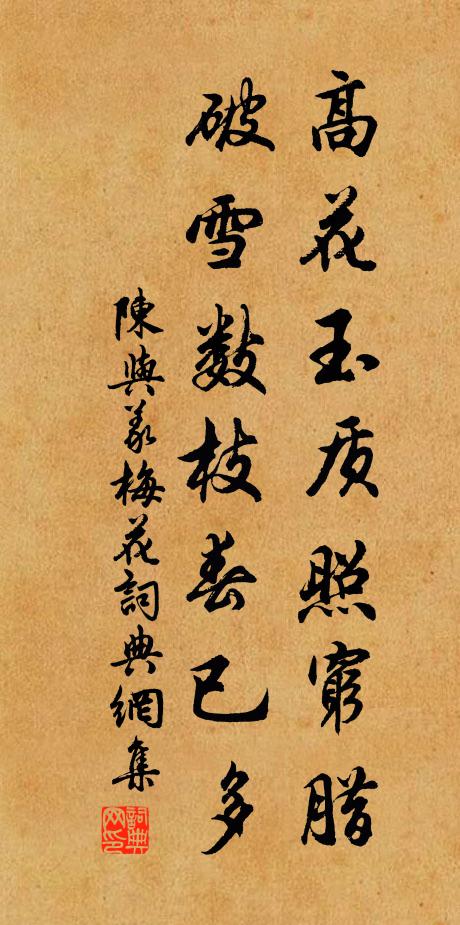 高花玉质照窮腊
破雪數枝春已多
陳與義梅花詞典網集
詞典網印